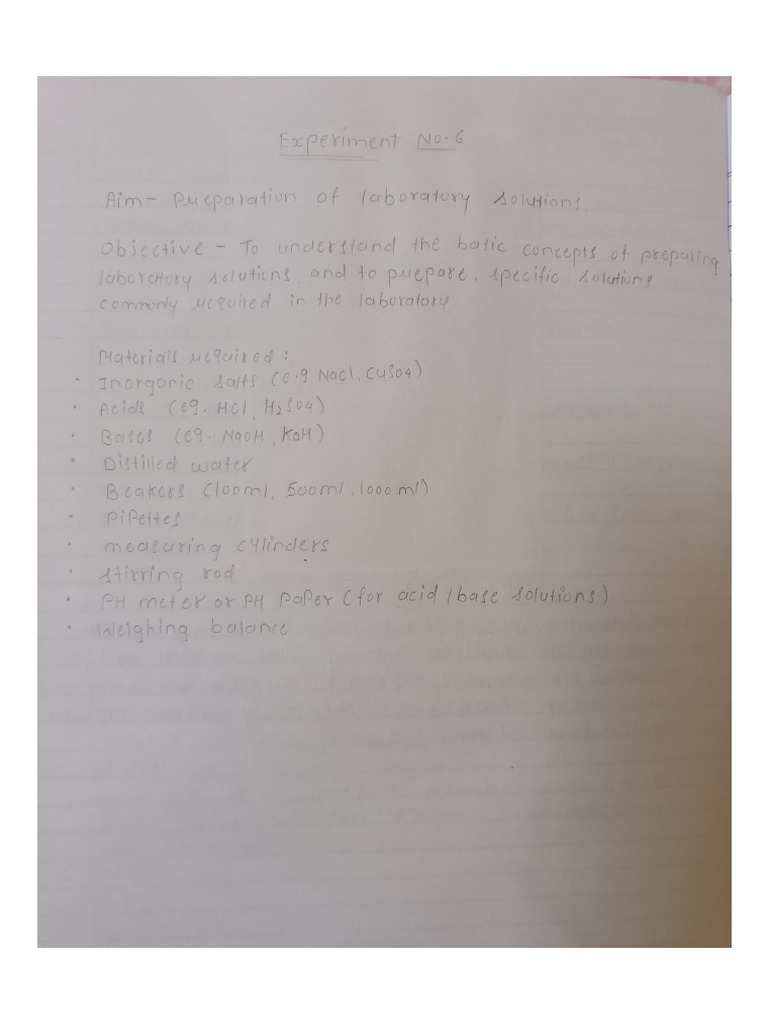 Experiment No. 6
Aim- Preparation of laboratory solutions.
Objective - To understand the basic concepts of preparing
laboratory solutions, and to prepare, specific solutions
commonly required in the laboratory
Materials required :
• Inorganic salts (e.g NaCl, CuSO4)
• Acids (eg. HCl, H2SO4)
• Bases (eg. NaOH, KOH)
• Distilled water
• Beakers (100ml, 500ml, 1000ml)
• Pipettes
• measuring cylinders
• stirring rod
• PH meter or PH paper (for acid/base solutions)
• Weighing balance